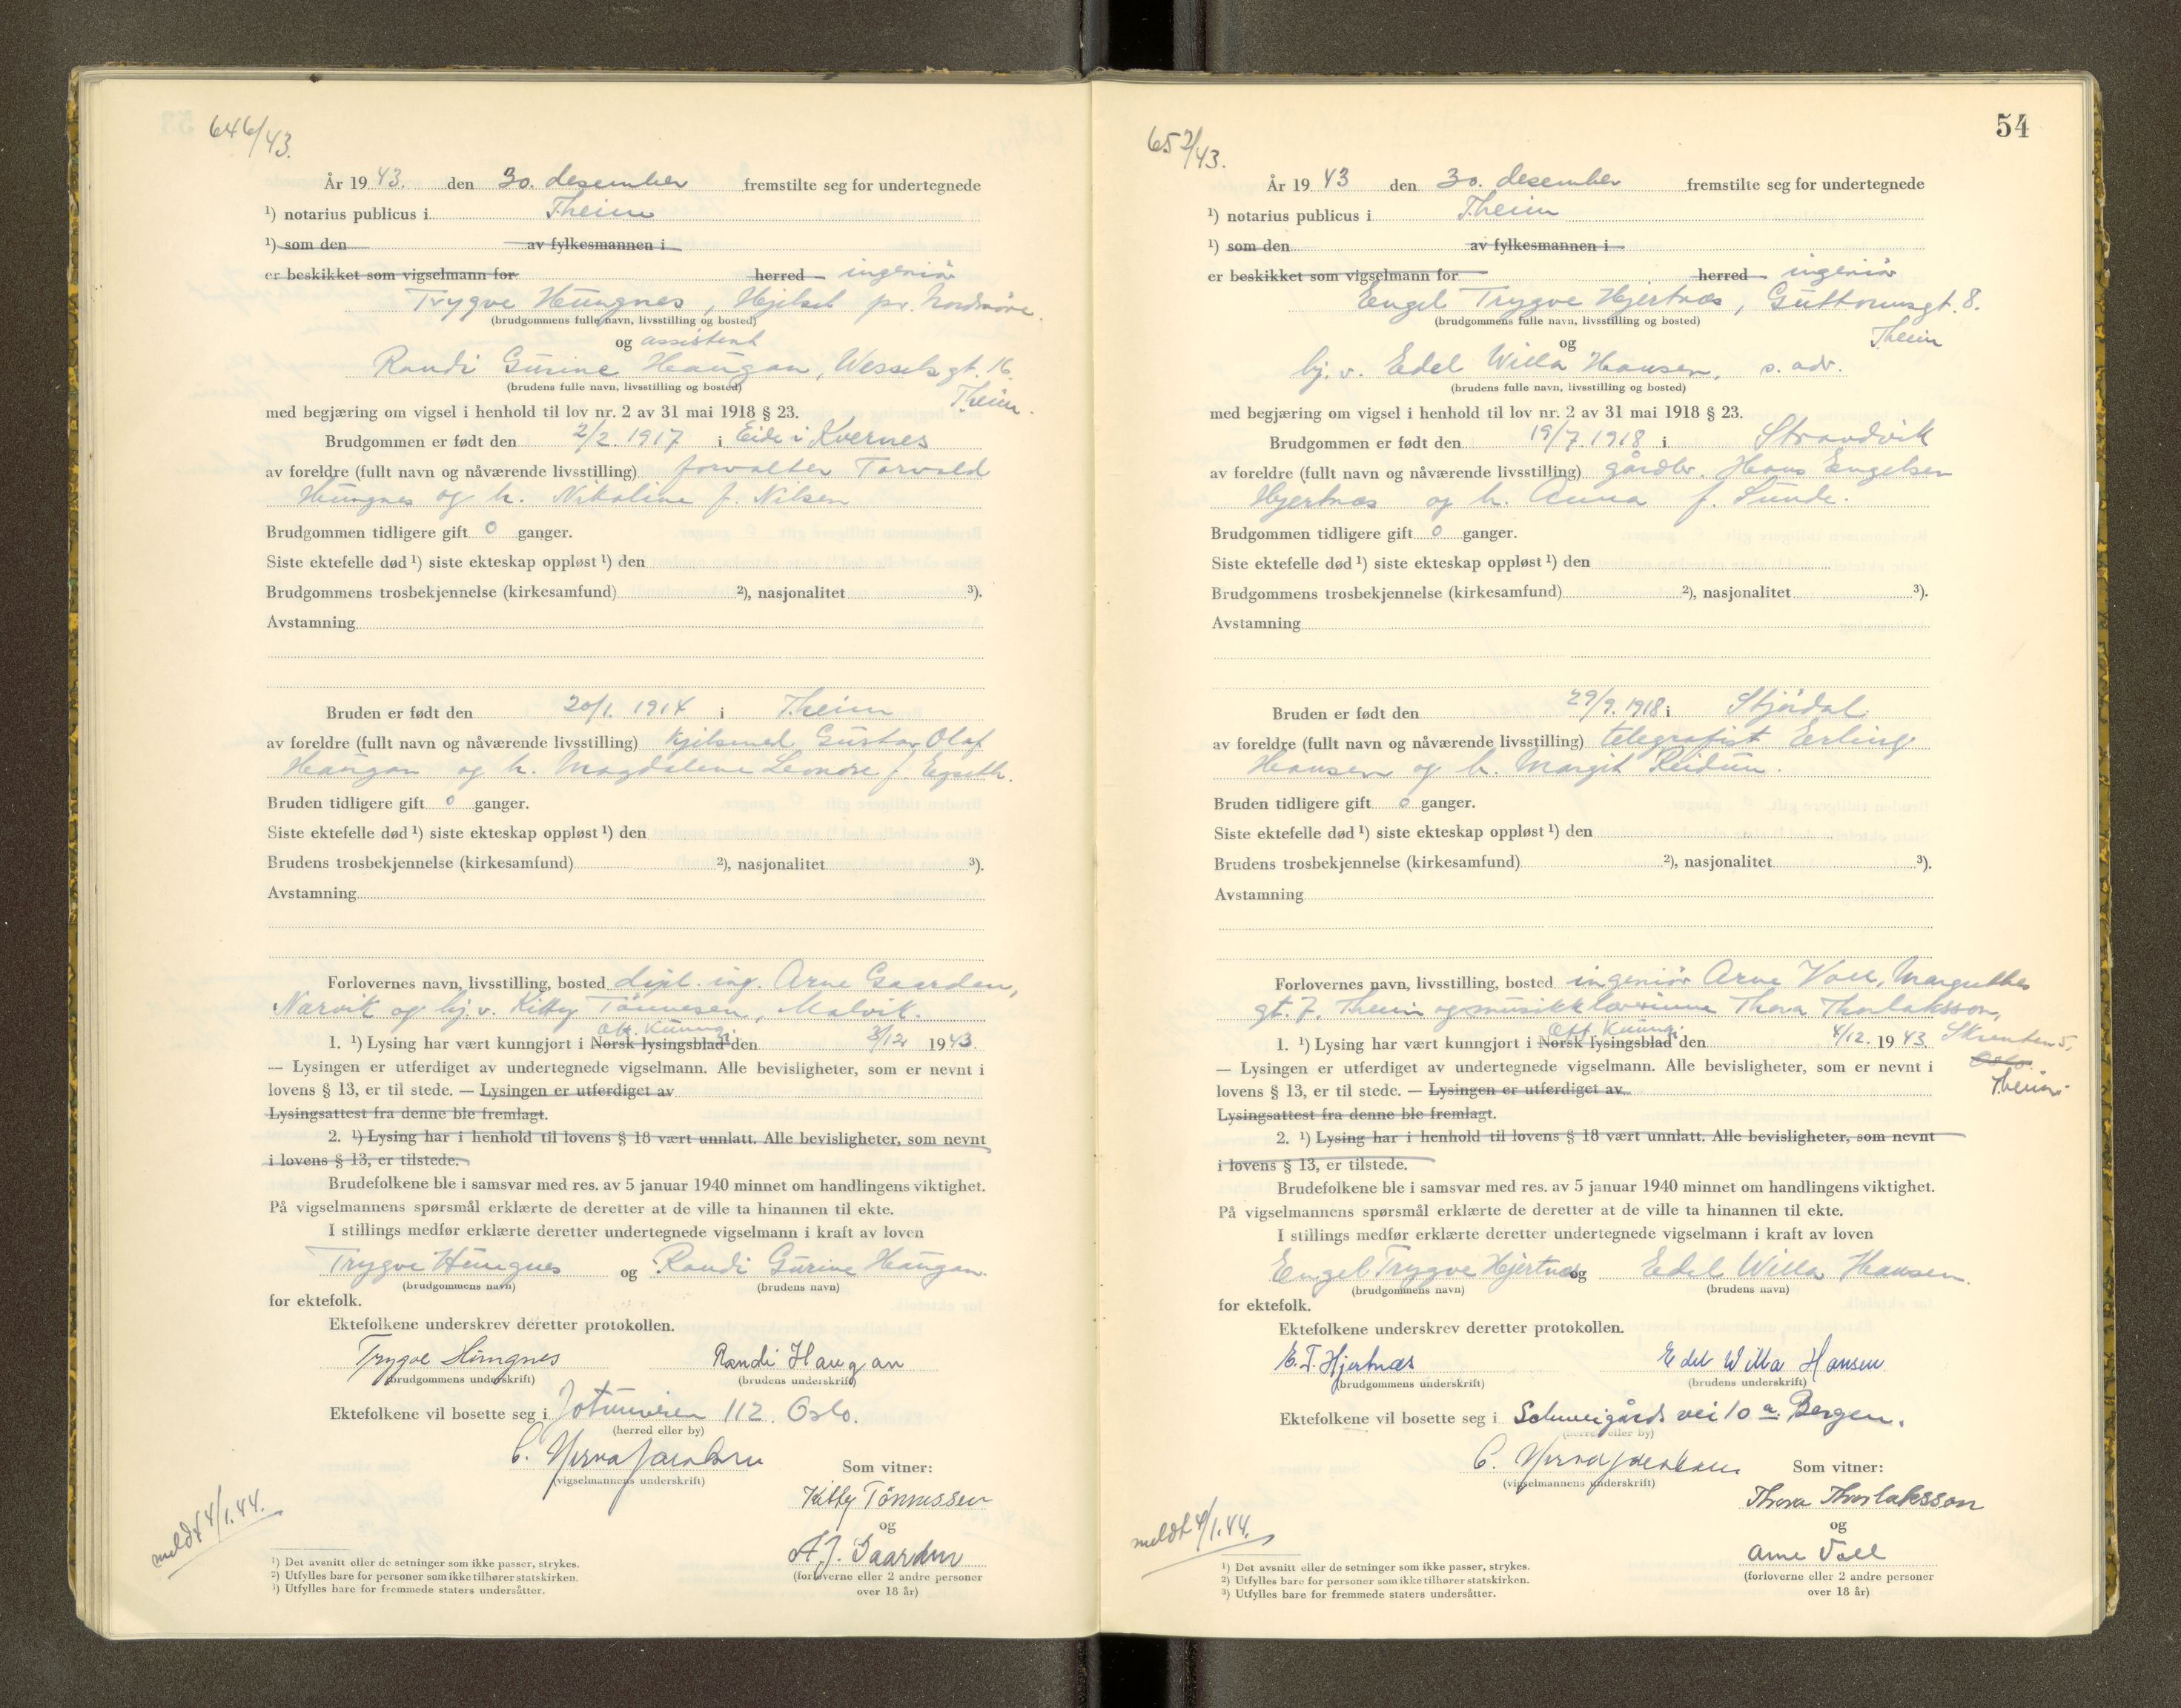 646/43.
År 1943. den 30. desember fremstilte seg for undertegnede
¹) notarius publicus i Theim
¹) som den av fylkesmannen i
er beskikket som vigselmann for herred ingeniør
Trygve Hungnes, Hjelset pr. Nordmøre.
(brudgommens fulle navn, livsstilling og bosted)
og assistent
Randi Gurine Haugan, Wessels gt. 16
(brudens fulle navn, livsstilling og bosted)
Theim.
med begjæring om vigsel i henhold til lov nr. 2 av 31 mai 1918 § 23.
Brudgommen er født den 2/2. 1917 i Eide i Kvernes
av foreldre (fullt navn og nåværende livsstilling) forvalter Torvald
Hungnes og h. Nikoline f. Nilsen
Brudgommen tidligere gift 0 ganger.
Siste ektefelle død ¹) siste ekteskap oppløst ¹) den
Brudgommens trosbekjennelse (kirkesamfund) ²), nasjonalitet ³).
Avstamning
Bruden er født den 20/1. 1914 i Theim
av foreldre (fullt navn og nåværende livsstilling) Gustav Olaf
Haugan og h. Magdalene Leonore f. Egseth.
Bruden tidligere gift 0 ganger.
Siste ektefelle død ¹) siste ekteskap oppløst ¹) den
Brudens trosbekjennelse (kirkesamfund) ²), nasjonalitet ³).
Avstamning
Forlovernes navn, livsstilling, bosted dipl. ing. Arne Gaarden,
Narvik og hj. v. Kitty Tønnesen, Malvik.
Off. Kunng.
1. ¹) Lysing har vært kunngjort i Norsk lysingsblad den 3/12 1943.
— Lysingen er utferdiget av undertegnede vigselmann. Alle bevisligheter, som er nevnt i
lovens § 13, er til stede. — Lysingen er utferdiget av
Lysingsattest fra denne ble fremlagt.
2. ¹) Lysing har i henhold til lovens § 18 vært unnlatt. Alle bevisligheter, som nevnt
i lovens § 13, er tilstede.
Brudefolkene ble i samsvar med res. av 5 januar 1940 minnet om handlingens viktighet.
På vigselmannens spørsmål erklærte de deretter at de ville ta hinannen til ekte.
I stillings medfør erklærte deretter undertegnede vigselmann i kraft av loven
Trygve Hungnes og Randi Gurine Haugan.
(brudgommens navn) (brudens navn)
for ektefolk.
Ektefolkene underskrev deretter protokollen.
Trygve Hungnes Randi Haugan
(brudgommens underskrift) (brudens underskrift)
Ektefolkene vil bosette seg i Jotunveien 112. Oslo.
(herred eller by)
(vigselmannens underskrift)
Som vitner:
Kitty Tønnessen
og
A. J. Gaarden
(forloverne eller 2 andre personer
over 18 år)
meldt 4/1.44.
¹) Det avsnitt eller de setninger som ikke passer, strykes.
²) Utfylles bare for personer som ikke tilhører statskirken.
³) Utfylles bare for fremmede staters undersåtter.
54
652/43.
År 1943 den 30. desember fremstilte seg for undertegnede
¹) notarius publicus i Theim
¹) som den av fylkesmannen i
er beskikket som vigselmann for herred ingeniør
Engel Trygve Hjertnæs, Guttormsgt. 8.
(brudgommens fulle navn, livsstilling og bosted)
Theim
og
hj. v. Edel Willa Hansen, s. adr.
(brudens fulle navn, livsstilling og bosted)
med begjæring om vigsel i henhold til lov nr. 2 av 31 mai 1918 § 23.
Brudgommen er født den 19/7. 1918 i Strandvik
av foreldre (fullt navn og nåværende livsstilling) gårdbr. Hans Engelsen
Hjertnæs og h. Anna f. Sunde.
Brudgommen tidligere gift 0 ganger.
Siste ektefelle død ¹) siste ekteskap oppløst ¹) den
Brudgommens trosbekjennelse (kirkesamfund) ²), nasjonalitet ³).
Avstamning
Bruden er født den 29/9. 1918 i Stjørdal.
av foreldre (fullt navn og nåværende livsstilling) telegrafist Erling
Hansen og h. Margit Reidun.
Bruden tidligere gift 0 ganger.
Siste ektefelle død ¹) siste ekteskap oppløst ¹) den
Brudens trosbekjennelse (kirkesamfund) ²), nasjonalitet ³).
Avstamning
Forlovernes navn, livsstilling, bosted ingeniør Arne Voll, Margrethes
gt. 7. Theim og musikklærerinne Thora Thorlaksson,
Off. Kunng.
1. ¹) Lysing har vært kunngjort i Norsk lysingsblad den 4/12. 1943 Skrenten 5,
Oslo.
Theim.
— Lysingen er utferdiget av undertegnede vigselmann. Alle bevisligheter, som er nevnt i
lovens § 13, er til stede. — Lysingen er utferdiget av
Lysingsattest fra denne ble fremlagt.
2. ¹) Lysing har i henhold til lovens § 18 vært unnlatt. Alle bevisligheter, som nevnt
i lovens § 13, er tilstede.
Brudefolkene ble i samsvar med res. av 5 januar 1940 minnet om handlingens viktighet.
På vigselmannens spørsmål erklærte de deretter at de ville ta hinannen til ekte.
I stillings medfør erklærte deretter undertegnede vigselmann i kraft av loven
Engel Trygve Hjertnæs og Edel Willa Hansen.
(brudgommens navn) (brudens navn)
for ektefolk.
Ektefolkene underskrev deretter protokollen.
E. T. Hjertnæs Edel Willa Hansen
(brudgommens underskrift) (brudens underskrift)
Ektefolkene vil bosette seg i Schweigårds vei 10 a Bergen.
(herred eller by)
(vigselmannens underskrift)
Som vitner:
Thora Thorlaksson
og
Arne Voll
(forloverne eller 2 andre personer
over 18 år)
meldt 4/1.44.
¹) Det avsnitt eller de setninger som ikke passer, strykes.
²) Utfylles bare for personer som ikke tilhører statskirken.
³) Utfylles bare for fremmede staters undersåtter.